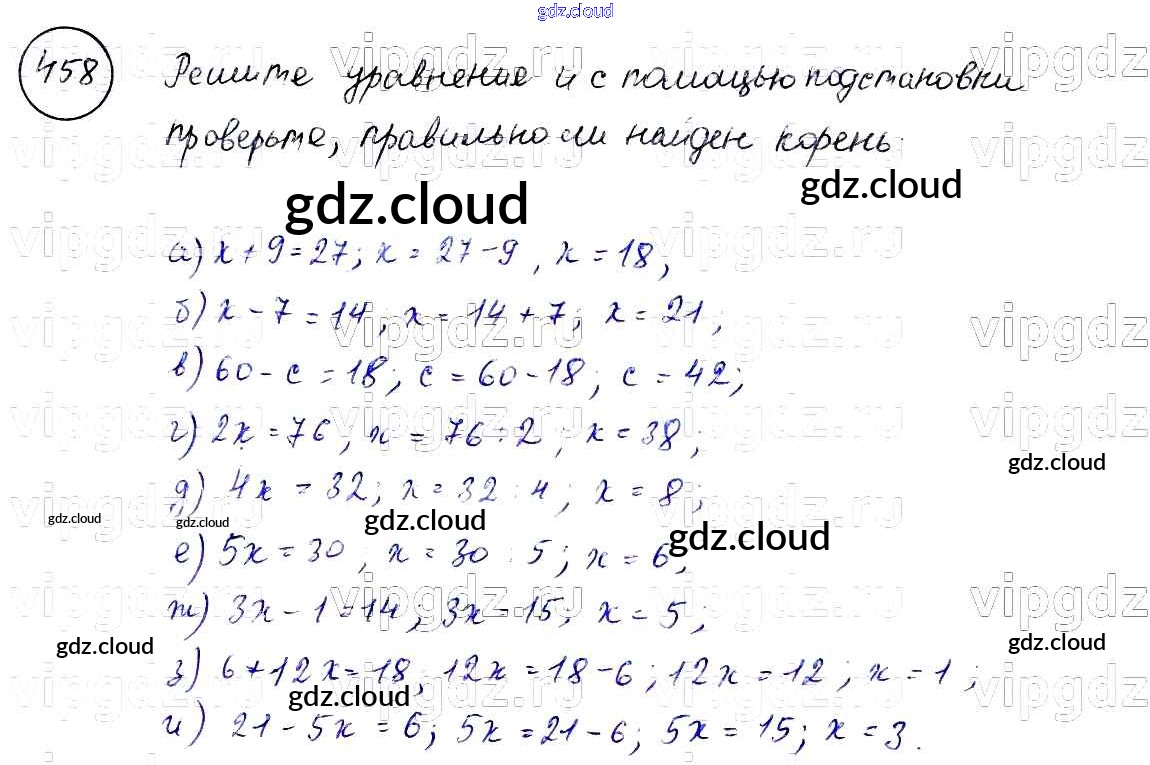 gdz.cloud
458 Решите уравнение и с помощью подстановки
проверьте, правильно ли найден корень:
gdz.cloud
gdz.cloud
а) x + 9 = 27; x = 27 - 9, x = 18;
б) x - 7 = 14; x = 14 + 7; x = 21;
в) 60 - c = 18; c = 60 - 18; c = 42;
г) 2x = 76; x = 76 : 2; x = 38;
gdz.cloud
д) 4x = 32; x = 32 : 4; x = 8;
gdz.cloud gdz.cloud gdz.cloud gdz.cloud
е) 5x = 30; x = 30 : 5; x = 6;
ж) 3x - 1 = 14; 3x = 15; x = 5;
gdz.cloud gdz.cloud
з) 6 + 12x = 18; 12x = 18 - 6; 12x = 12; x = 1;
gdz.cloud
и) 21 - 5x = 6; 5x = 21 - 6; 5x = 15; x = 3.
vipgdz.ru vipgdz.ru vipgdz.ru vipgdz